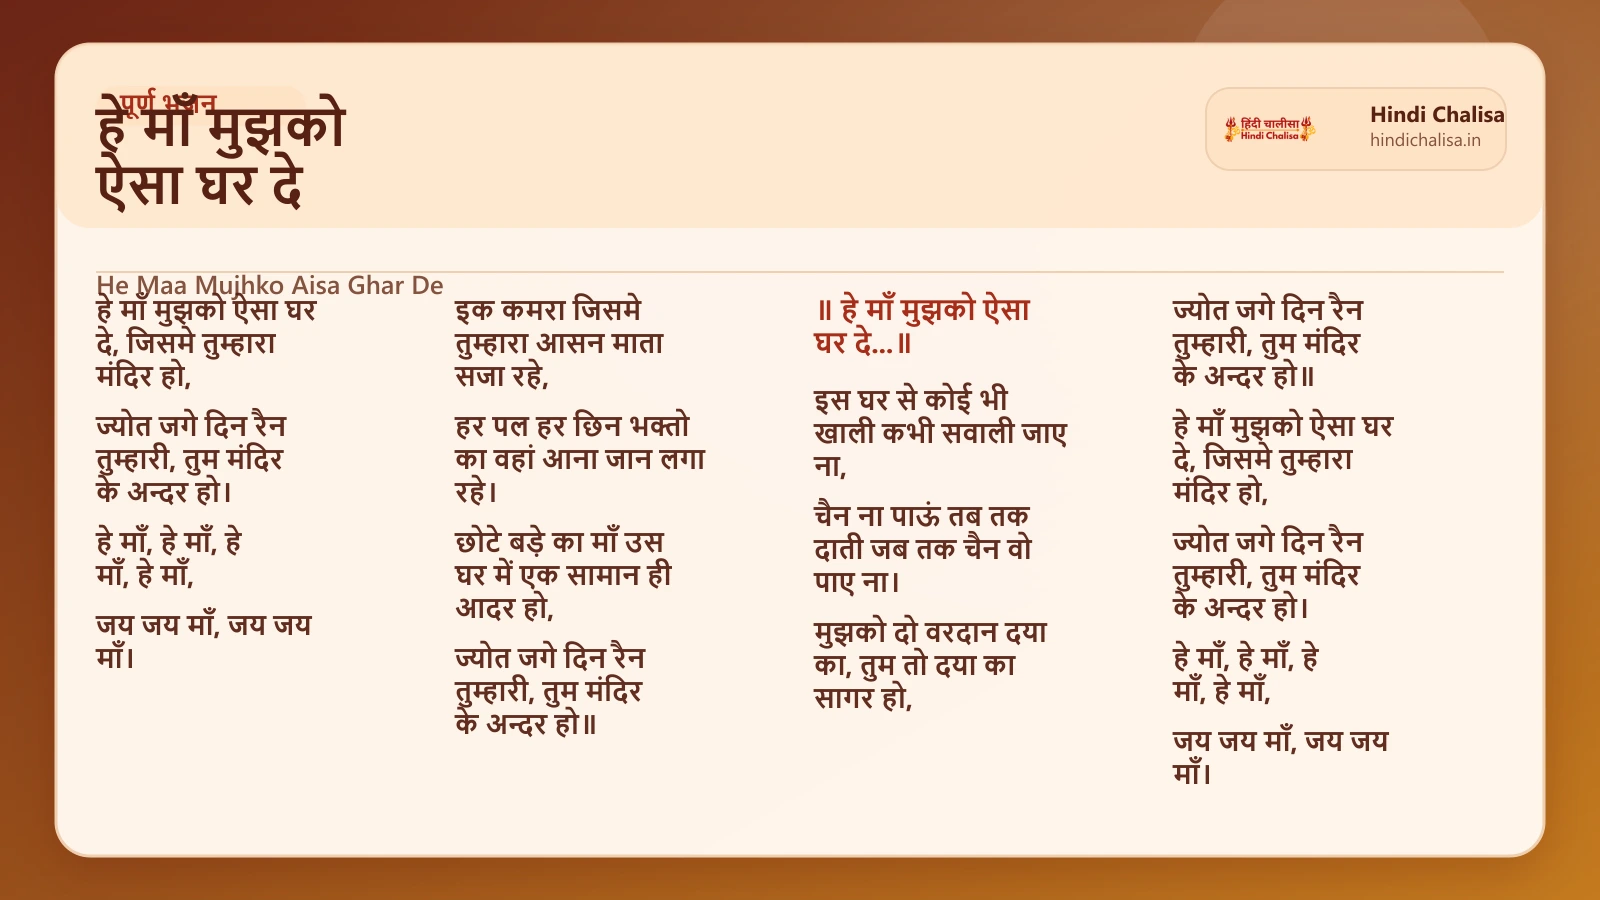 पूर्ण भजन
हे माँ मुझको
ऐसा घर दे
हिंदी चालीसा
Hindi Chalisa
Hindi Chalisa
hindichalisa.in
He Maa Mujhko Aisa Ghar De
हे माँ मुझको ऐसा घर
दे, जिसमे तुम्हारा
मंदिर हो,
ज्योत जगे दिन रैन
तुम्हारी, तुम मंदिर
के अन्दर हो।
हे माँ, हे माँ, हे
माँ, हे माँ,
जय जय माँ, जय जय
माँ।
इक कमरा जिसमे
तुम्हारा आसन माता
सजा रहे,
हर पल हर छिन भक्तो
का वहां आना जान लगा
रहे।
छोटे बड़े का माँ उस
घर में एक सामान ही
आदर हो,
ज्योत जगे दिन रैन
तुम्हारी, तुम मंदिर
के अन्दर हो॥
॥ हे माँ मुझको ऐसा
घर दे...॥
इस घर से कोई भी
खाली कभी सवाली जाए
ना,
चैन ना पाऊं तब तक
दाती जब तक चैन वो
पाए ना।
मुझको दो वरदान दया
का, तुम तो दया का
सागर हो,
ज्योत जगे दिन रैन
तुम्हारी, तुम मंदिर
के अन्दर हो॥
हे माँ मुझको ऐसा घर
दे, जिसमे तुम्हारा
मंदिर हो,
ज्योत जगे दिन रैन
तुम्हारी, तुम मंदिर
के अन्दर हो।
हे माँ, हे माँ, हे
माँ, हे माँ,
जय जय माँ, जय जय
माँ।